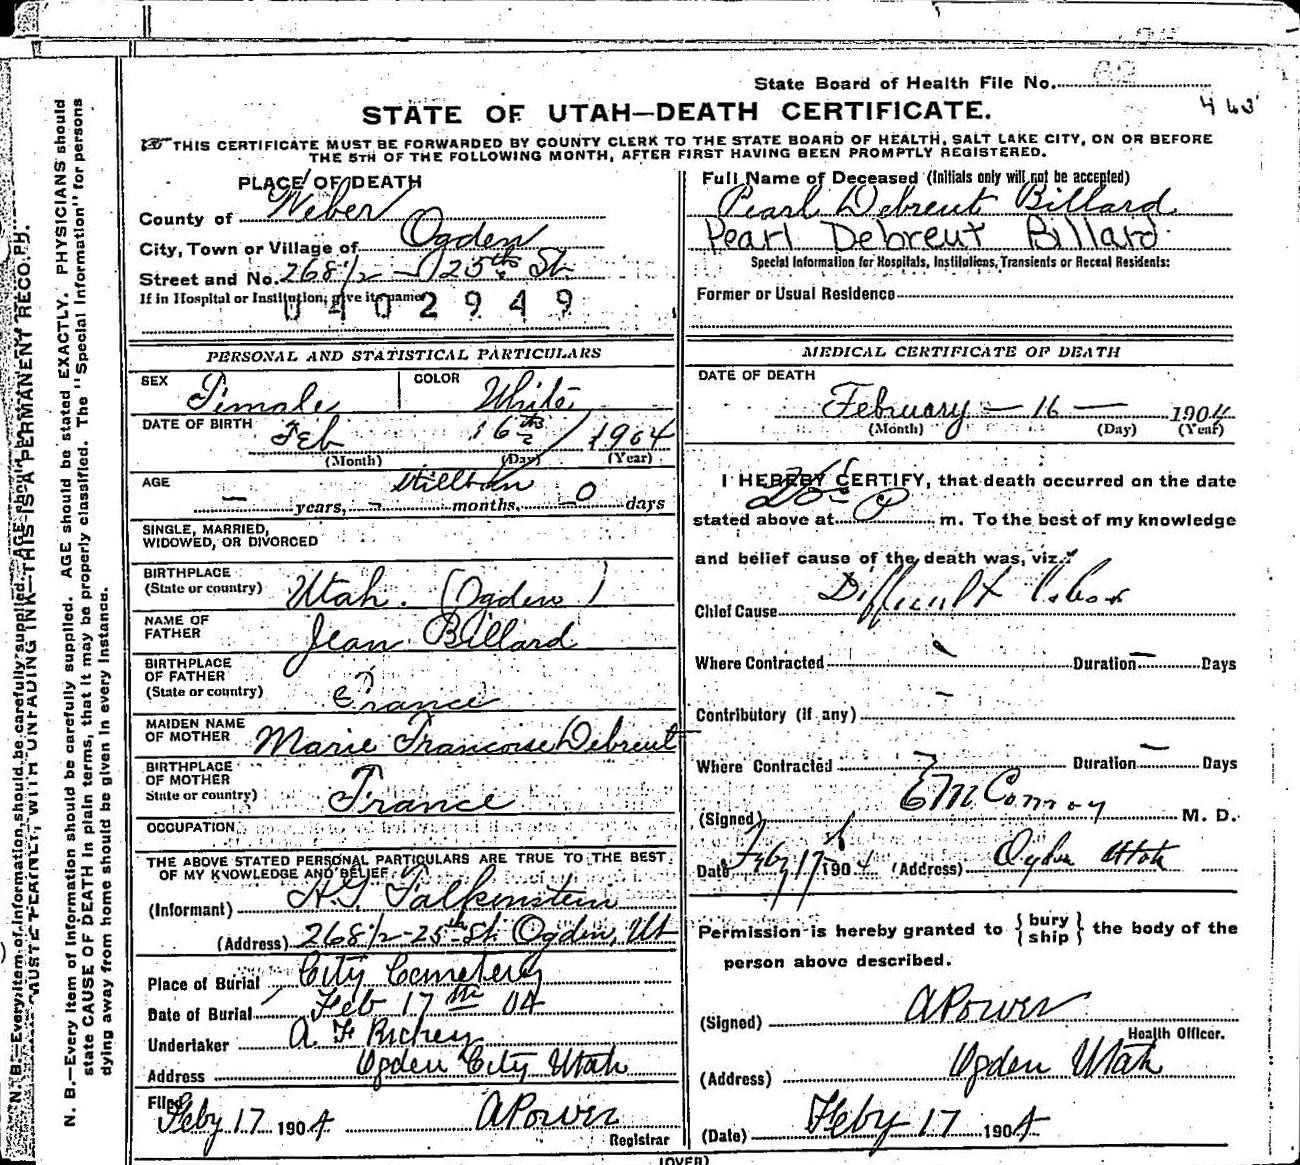 State Board of Health File No. 62
463
STATE OF UTAH—DEATH CERTIFICATE.
THIS CERTIFICATE MUST BE FORWARDED BY COUNTY CLERK TO THE STATE BOARD OF HEALTH, SALT LAKE CITY, ON OR BEFORE
THE 5TH OF THE FOLLOWING MONTH, AFTER FIRST HAVING BEEN PROMPTLY REGISTERED.
PLACE OF DEATH
County of Weber
City, Town or Village of Ogden
Street and No. 268 1/2 - 25th St
If in Hospital or Institution, give its name
0402949
Full Name of Deceased (Initials only will not be accepted)
Pearl Debreut Billard
Pearl Debreut Billard
Special Information for Hospitals, Institutions, Transients or Recent Residents:
Former or Usual Residence
PERSONAL AND STATISTICAL PARTICULARS
SEX Female COLOR White
DATE OF BIRTH Feb 16th 1904
(Month) (Day) (Year)
AGE Stillborn
— years, - months, 0 days
SINGLE, MARRIED,
WIDOWED, OR DIVORCED
BIRTHPLACE
(State or country) Utah. (Ogden)
NAME OF
FATHER Jean Billard
BIRTHPLACE
OF FATHER
(State or country) France
MAIDEN NAME
OF MOTHER Marie Francoise Debreut
BIRTHPLACE
OF MOTHER
State or country) France
OCCUPATION
THE ABOVE STATED PERSONAL PARTICULARS ARE TRUE TO THE BEST
OF MY KNOWLEDGE AND BELIEF
(Informant) H.G. Falkenstein
(Address) 268 1/2 - 25th St. Ogden, Ut
Place of Burial City Cemetery
Date of Burial Feb 17th 04
Undertaker A F Richey
Address Ogden City Utah
Filed
Feby 17 1904 A Power
Registrar
MEDICAL CERTIFICATE OF DEATH
DATE OF DEATH
February — 16 — 1904
(Month) (Day) (Year)
I HEREBY CERTIFY, that death occurred on the date
stated above at P m. To the best of my knowledge
and belief cause of the death was, viz.:
Chief Cause Difficult labor
Where Contracted - Duration — Days
Contributory (if any) -
Where Contracted Duration — Days
(Signed) E M Conroy M. D.
Date Feby 17th 1904 (Address) Ogden Utah
Permission is hereby granted to { bury
ship } the body of the
person above described.
(Signed) A Power
Health Officer.
(Address) Ogden Utah
(Date) Feby 17 1904
(OVER)
N. B.—Every item of information should be carefully supplied. AGE should be stated EXACTLY. PHYSICIANS should
state CAUSE OF DEATH in plain terms, that it may be properly classified. The "Special Information" for persons
dying away from home should be given in every instance.
N. B.—Every item of information should be carefully supplied.
WITH UNFADING INK—THIS IS A PERMANENT RECORD.